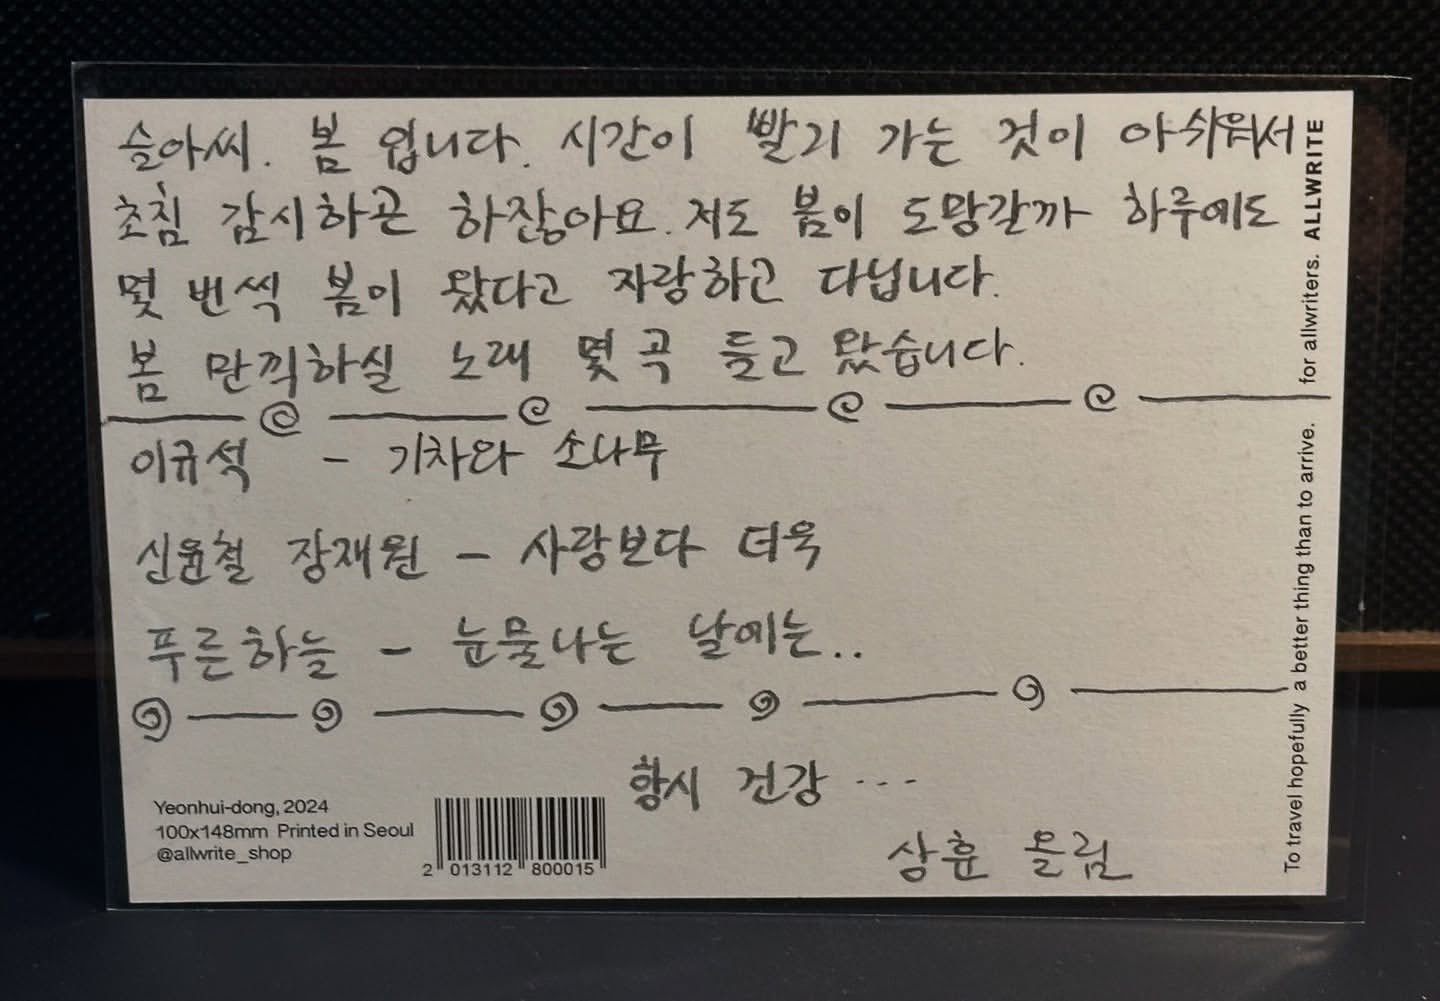 슬아씨. 봄 입니다. 시간이 빨리 가는 것이 아쉬워서
초침 감시하곤 하잖아요. 저도 봄이 도망갈까 하루에도
몇 번씩 봄이 왔다고 자랑하고 다닙니다.
봄 만끽하실 노래 몇 곡 들고 왔습니다.
이규석 - 기차와 소나무
신윤철 장재원 - 사랑보다 더욱
푸른하늘 - 눈물나는 날에는..
항시 건강 ...
상훈 올림
Yeonhui-dong, 2024
100x148mm Printed in Seoul
@allwrite_shop
2 013112 800015
To travel hopefully a better thing than to arrive. for allwriters. ALLWRITE